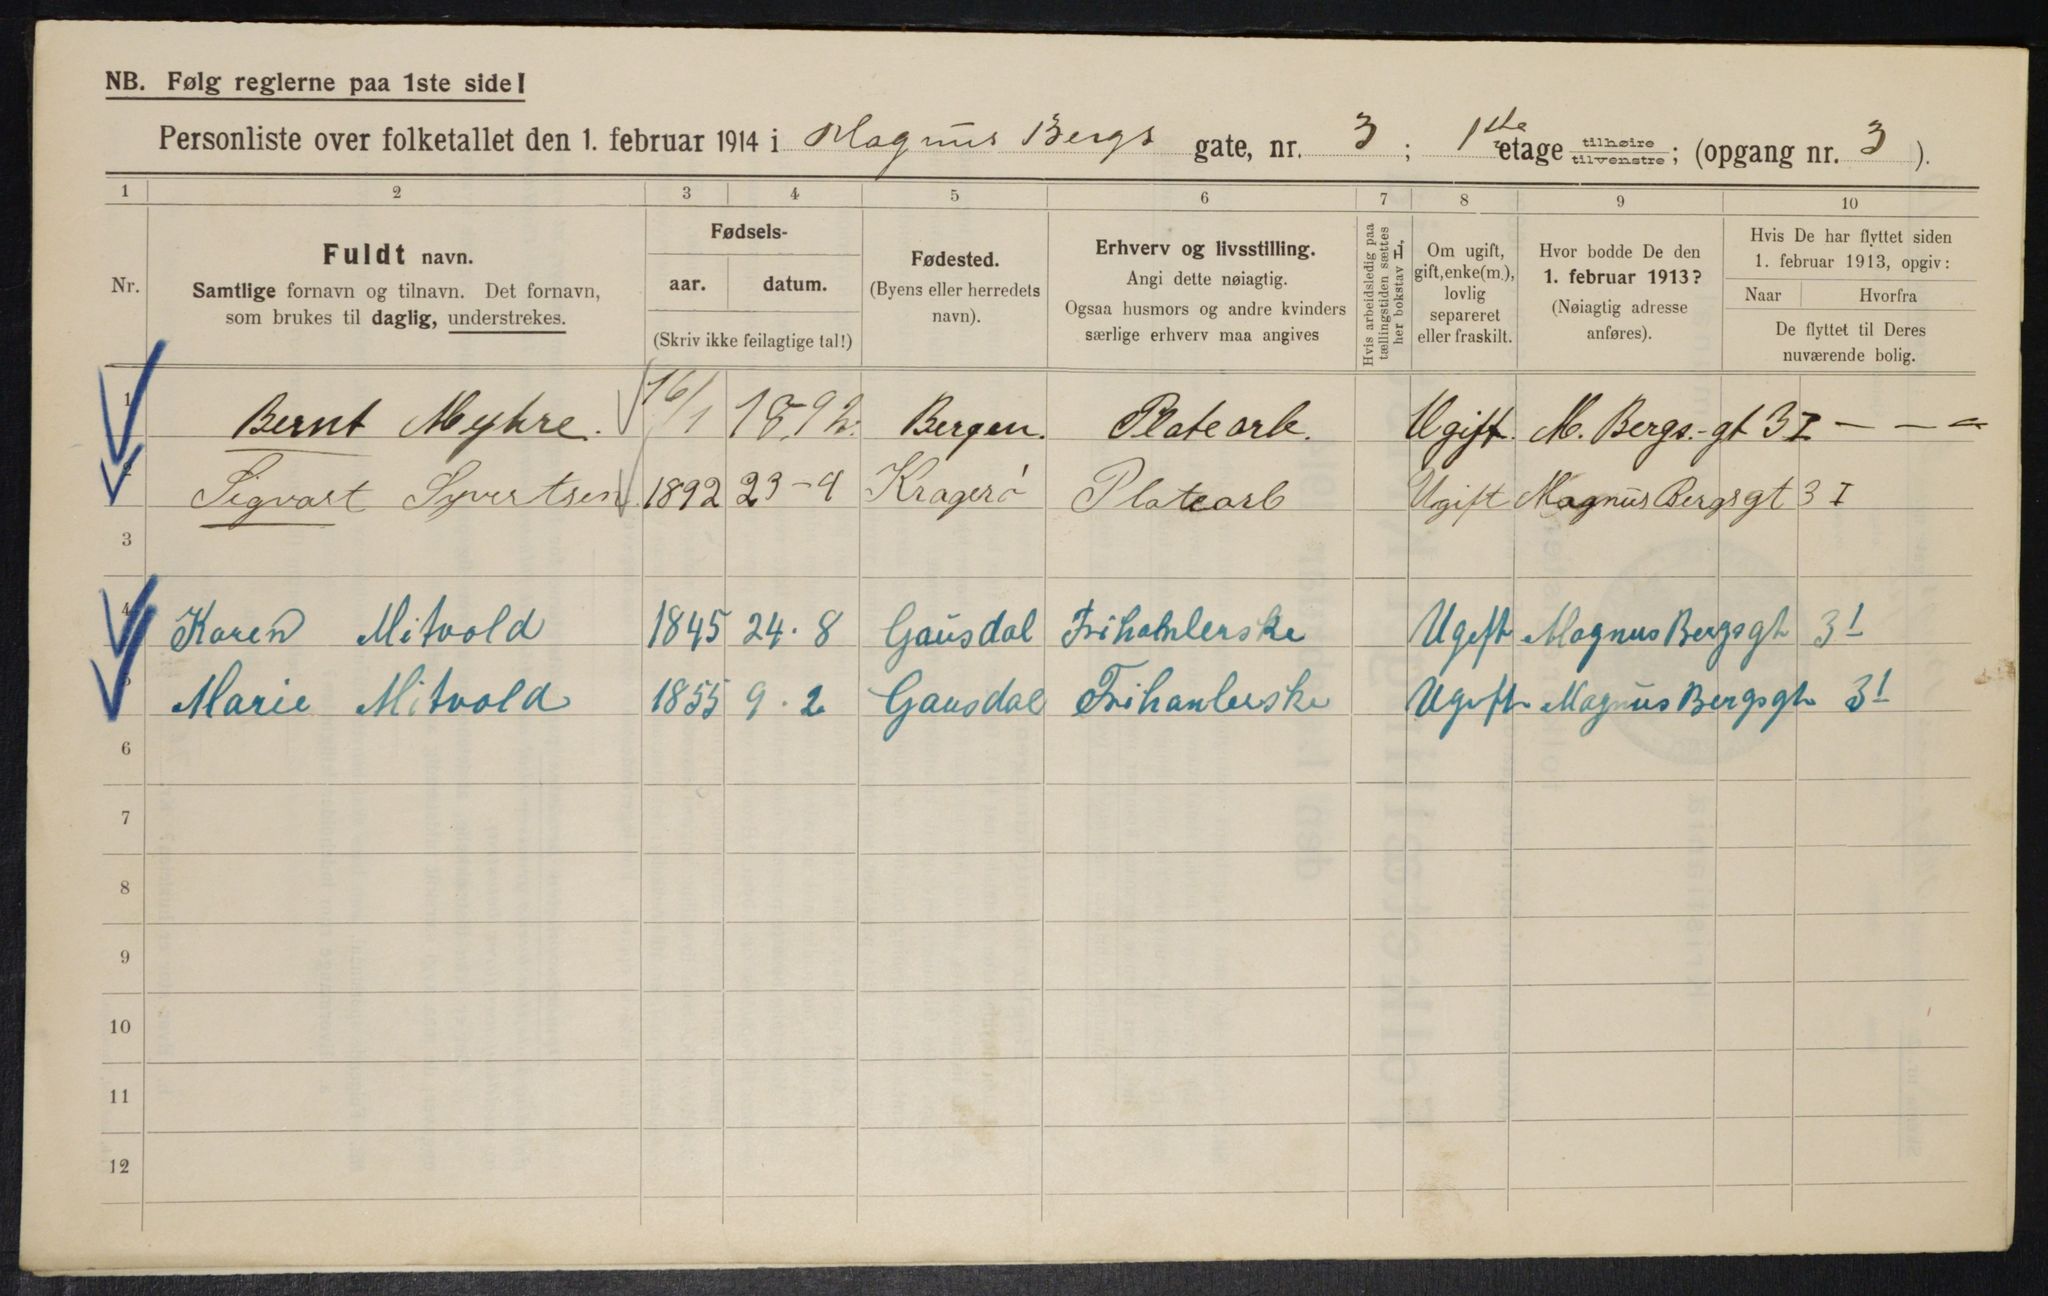 NB. Følg reglerne paa 1ste side!
Personliste over folketallet den 1. februar 1914 i Magnus Bergs gate, nr. 3 ; 1ste etage tilhøire tilvenstre ; (opgang nr. 3 ).
1 2 3 4 5 6 7 8 9 10
Nr.
Fuldt navn.
Samtlige fornavn og tilnavn. Det fornavn,
som brukes til daglig, understrekes.
Fødsels-
aar. datum.
(Skriv ikke feilagtige tal!)
Fødested.
(Byens eller herredets
navn).
Erhverv og livsstilling.
Angi dette nøiagtig.
Ogsaa husmors og andre kvinders
særlige erhverv maa angives
Hvis arbeidsledig paa
tællingstiden sættes
her bokstav L.
Om ugift,
gift, enke(m.),
lovlig
separeret
eller fraskilt.
Hvor bodde De den
1. februar 1913?
(Nøiagtig adresse
anføres).
Hvis De har flyttet siden
1. februar 1913, opgiv:
Naar Hvorfra
De flyttet til Deres
nuværende bolig.
1 Bernt Myhre. 16/1 1892. Bergen. Platearb. Ugift. M. Bergs.-gt 3 I — — —
2 Sigvart Syvertsen 1892 23-9 Kragerø Platearb Ugift Magnus Bergsgt 3 I
3
4 Karen Mitvold 1845 24.8 Gausdal Frihanlerske Ugift Magnus Bergsgt 3 I
5 Marie Mitvold 1855 9.2 Gausdal Frihanlerske Ugift Magnus Bergsgt 3 I
6
7
8
9
10
11
12